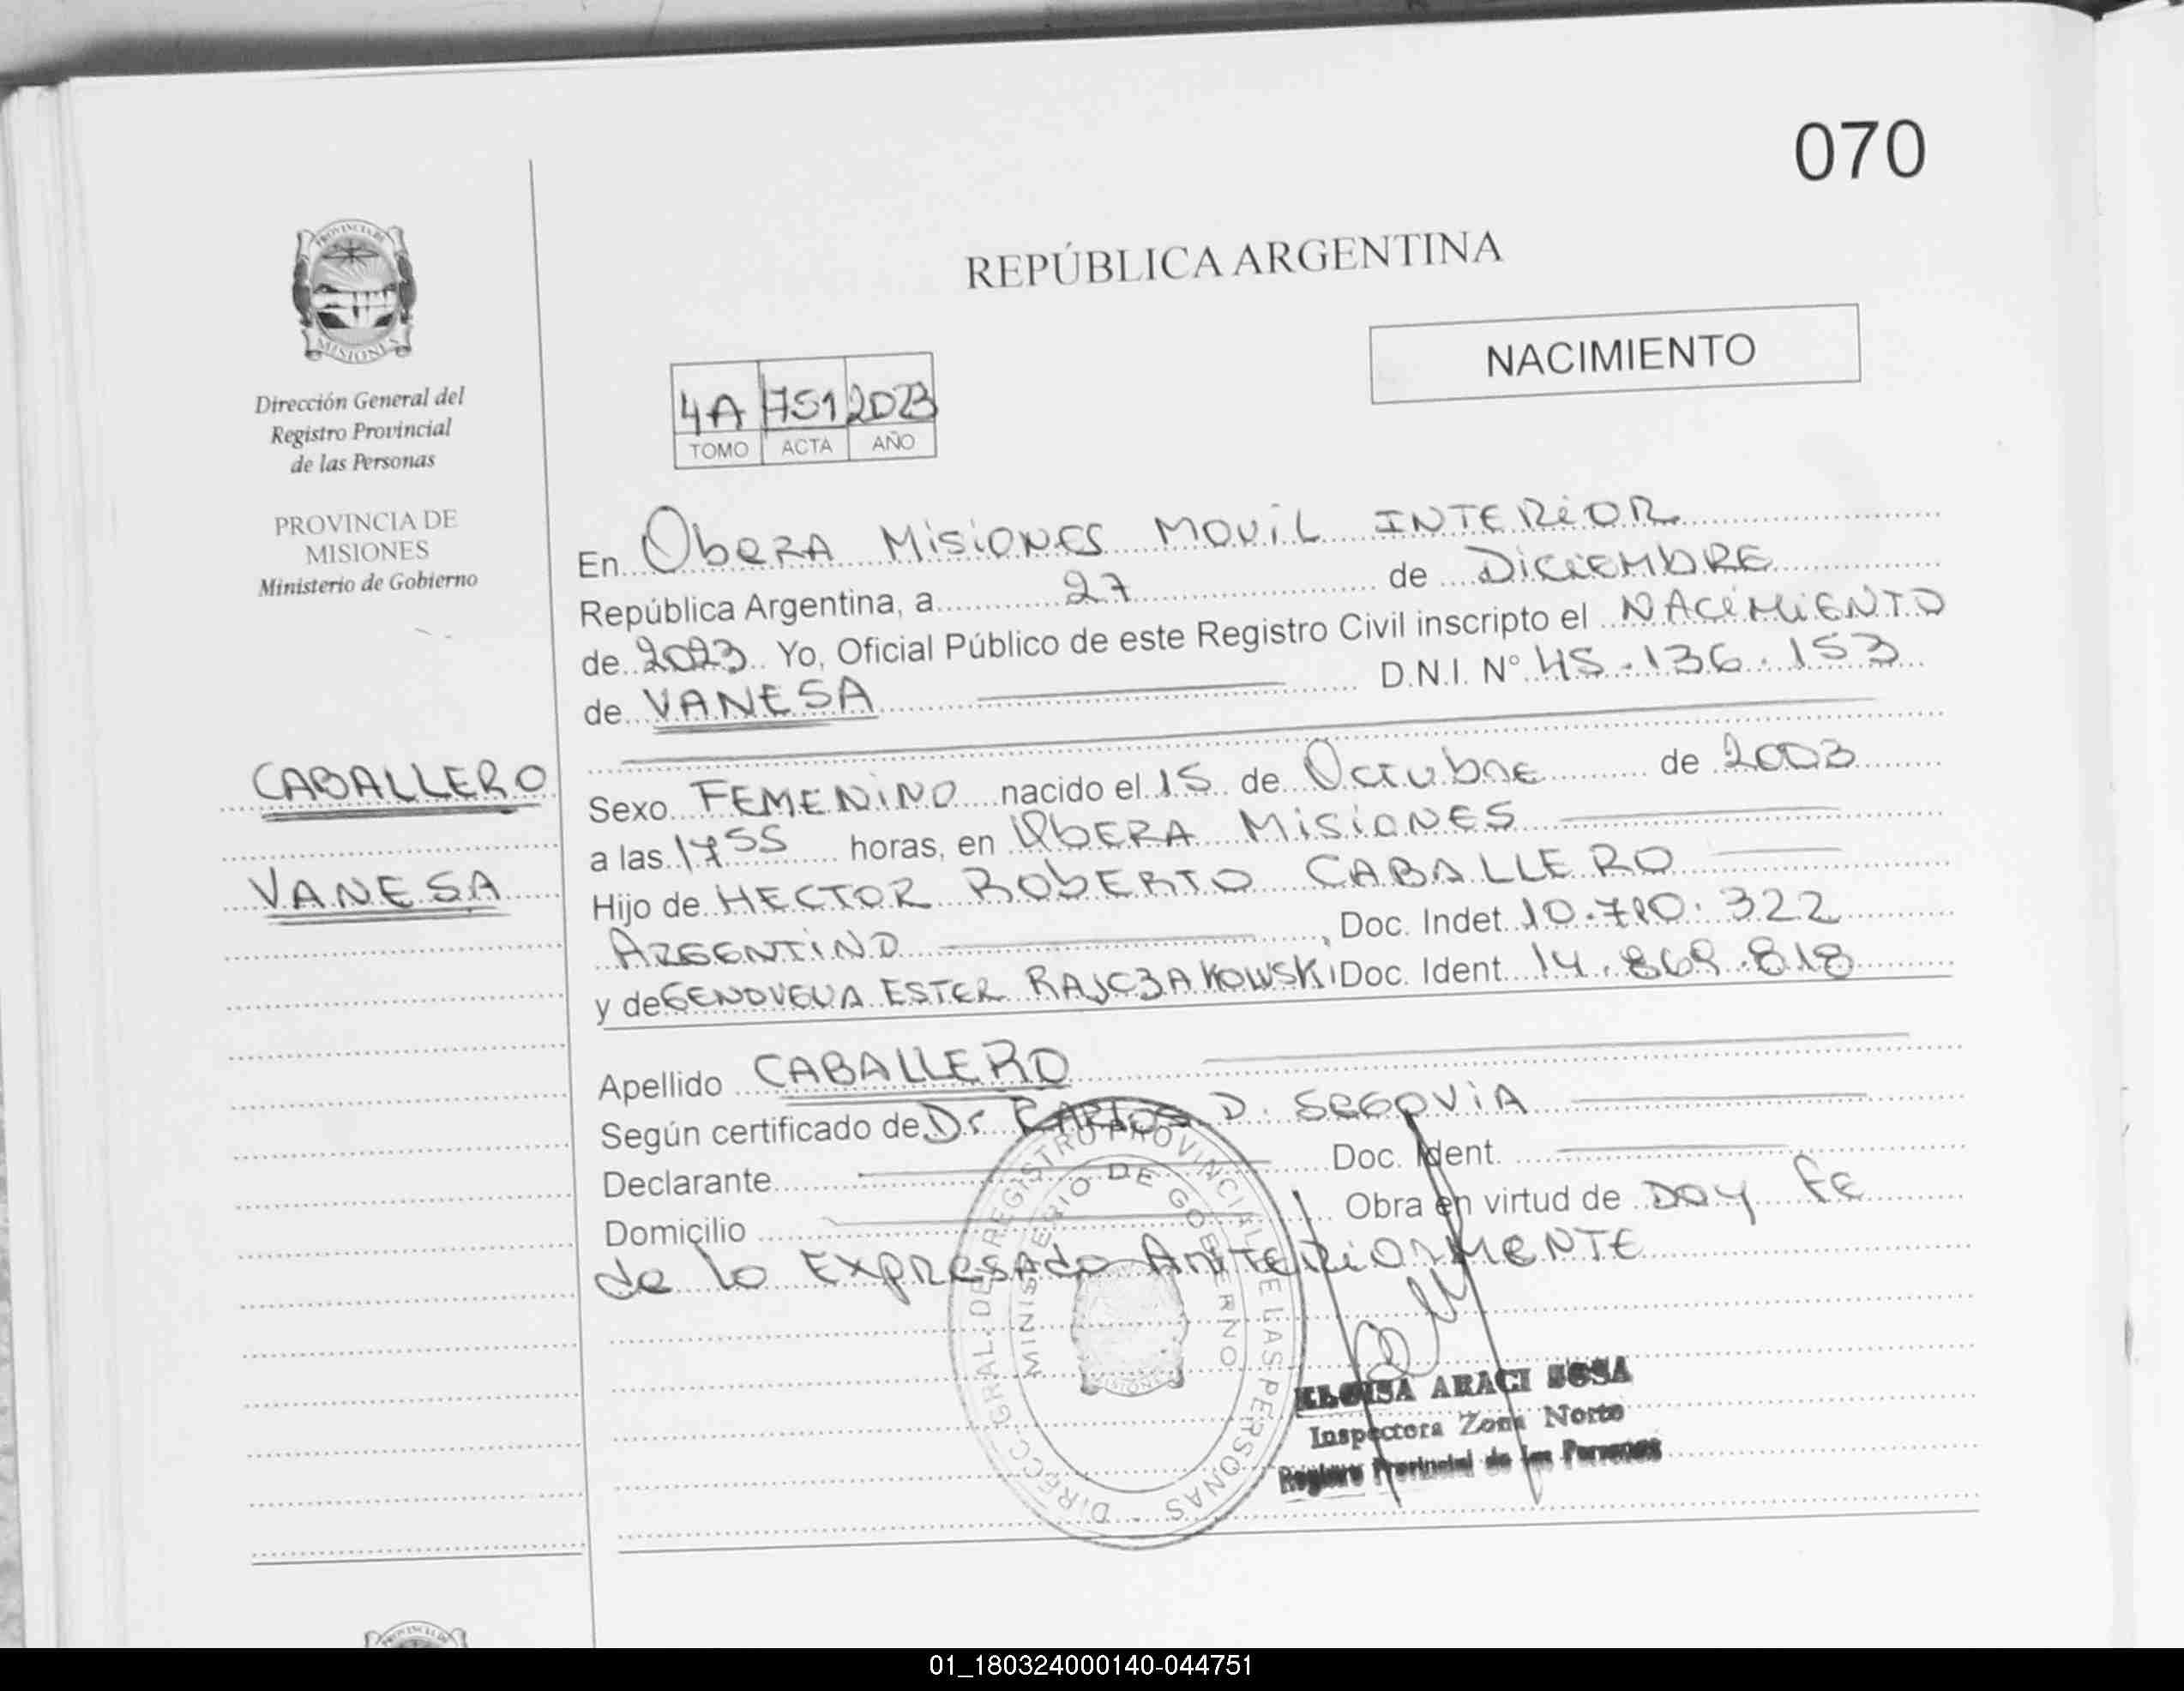 070
REPÚBLICA ARGENTINA
NACIMIENTO
PROVINCIA DE
MISIONES
Dirección General del
Registro Provincial
de las Personas
PROVINCIA DE
MISIONES
Ministerio de Gobierno
CABALLERO
VANESA
4A 751 2023
TOMO ACTA AÑO
En ObeRA MisiONES MOViL INTERiOR
República Argentina, a 27 de DiCiEMbRE
de 2023 Yo, Oficial Público de este Registro Civil inscripto el NACiMiENTO
de VANESA D.N.I. N° 45.136.153
Sexo FEMENiNO nacido el 15 de Octubre de 2003
a las 1755 horas, en ObERA MiSiONES
Hijo de HECTOR RObERTO CABALLERO
ARGENTiNO, Doc. Indet. 10.710.322
y de GENOVEVA ESTER RAJCZAKOWSKI Doc. Ident. 14.869.818
Apellido CABALLERO
Según certificado de Dr CARLOS D. SEGOViA
Declarante Doc. Ident.
Domicilio Obra en virtud de DOY FE
de lo ExpRESAdo ANTERiORMENTE
DIRECC. GRAL. DE REGISTRO PROVINCIAL DE LAS PERSONAS
MINISTERIO DE GOBIERNO
MISIONES
ELOISA ARACI SOSA
Inspectora Zona Norte
Registro Provincial de las Personas
PROVINCIA DE
01_180324000140-044751